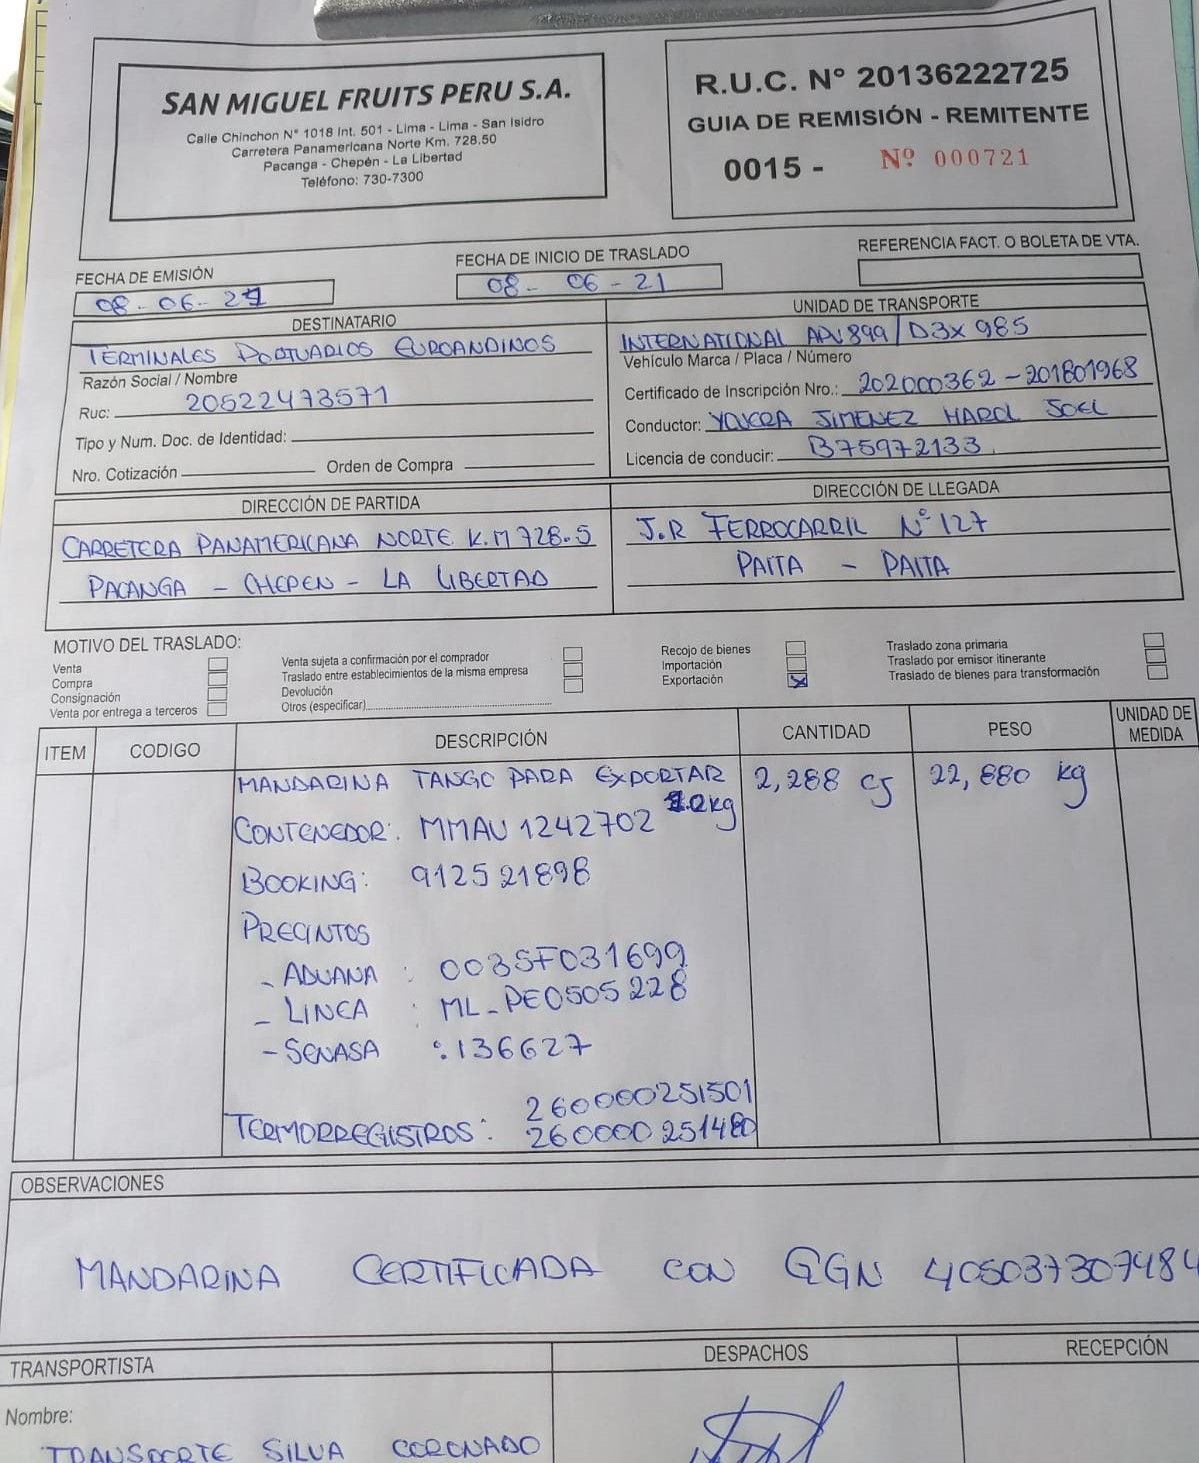 SAN MIGUEL FRUITS PERU S.A.
Calle Chinchon N° 1018 Int. 501 - Lima - Lima - San Isidro
Carretera Panamericana Norte Km. 728.50
Pacanga - Chepén - La Libertad
Teléfono: 730-7300
R.U.C. N° 20136222725
GUIA DE REMISIÓN - REMITENTE
0015 - Nº 000721
FECHA DE EMISIÓN
08-06-21
FECHA DE INICIO DE TRASLADO
08-06-21
REFERENCIA FACT. O BOLETA DE VTA.
DESTINATARIO
TERMINALES PORTUARIOS EUROANDINOS
Razón Social / Nombre
Ruc: 20522473571
Tipo y Num. Doc. de Identidad:
Nro. Cotización Orden de Compra
UNIDAD DE TRANSPORTE
INTERNATIONAL 899/D3X 985
Vehículo Marca / Placa / Número
Certificado de Inscripción Nro.: 202000362-201801968
Conductor: JIMENEZ HAROL JOEL
Licencia de conducir: B75972133
DIRECCIÓN DE PARTIDA
CARRETERA PANAMERICANA NORTE K.M 728.5
PACANGA - CHEPEN - LA LIBERTAD
DIRECCIÓN DE LLEGADA
J.R FERROCARRIL N° 127
PAITA - PAITA
MOTIVO DEL TRASLADO:
Venta
Compra
Consignación
Venta por entrega a terceros
Venta sujeta a confirmación por el comprador
Traslado entre establecimientos de la misma empresa
Devolución
Otros (especificar)
Recojo de bienes
Importación
Exportación X
Traslado zona primaria
Traslado por emisor itinerante
Traslado de bienes para transformación
ITEM CODIGO DESCRIPCIÓN CANTIDAD PESO UNIDAD DE MEDIDA
MANDARINA TANGO PARA EXPORTAR 2,288 cj 22,880 kg
CONTENEDOR: MMAU 1242702
BOOKING: 912521898
PRECINTOS
- ADUANA : 0035F031699
- LINEA : ML-PE0505228
- SENASA : 136627
260000251501
TERMORREGISTROS: 260000251480
OBSERVACIONES
MANDARINA CERTIFICADA CON GGN 405037307484
TRANSPORTISTA
DESPACHOS
RECEPCIÓN
Nombre:
TRANSPORTE SILVA CORONADO